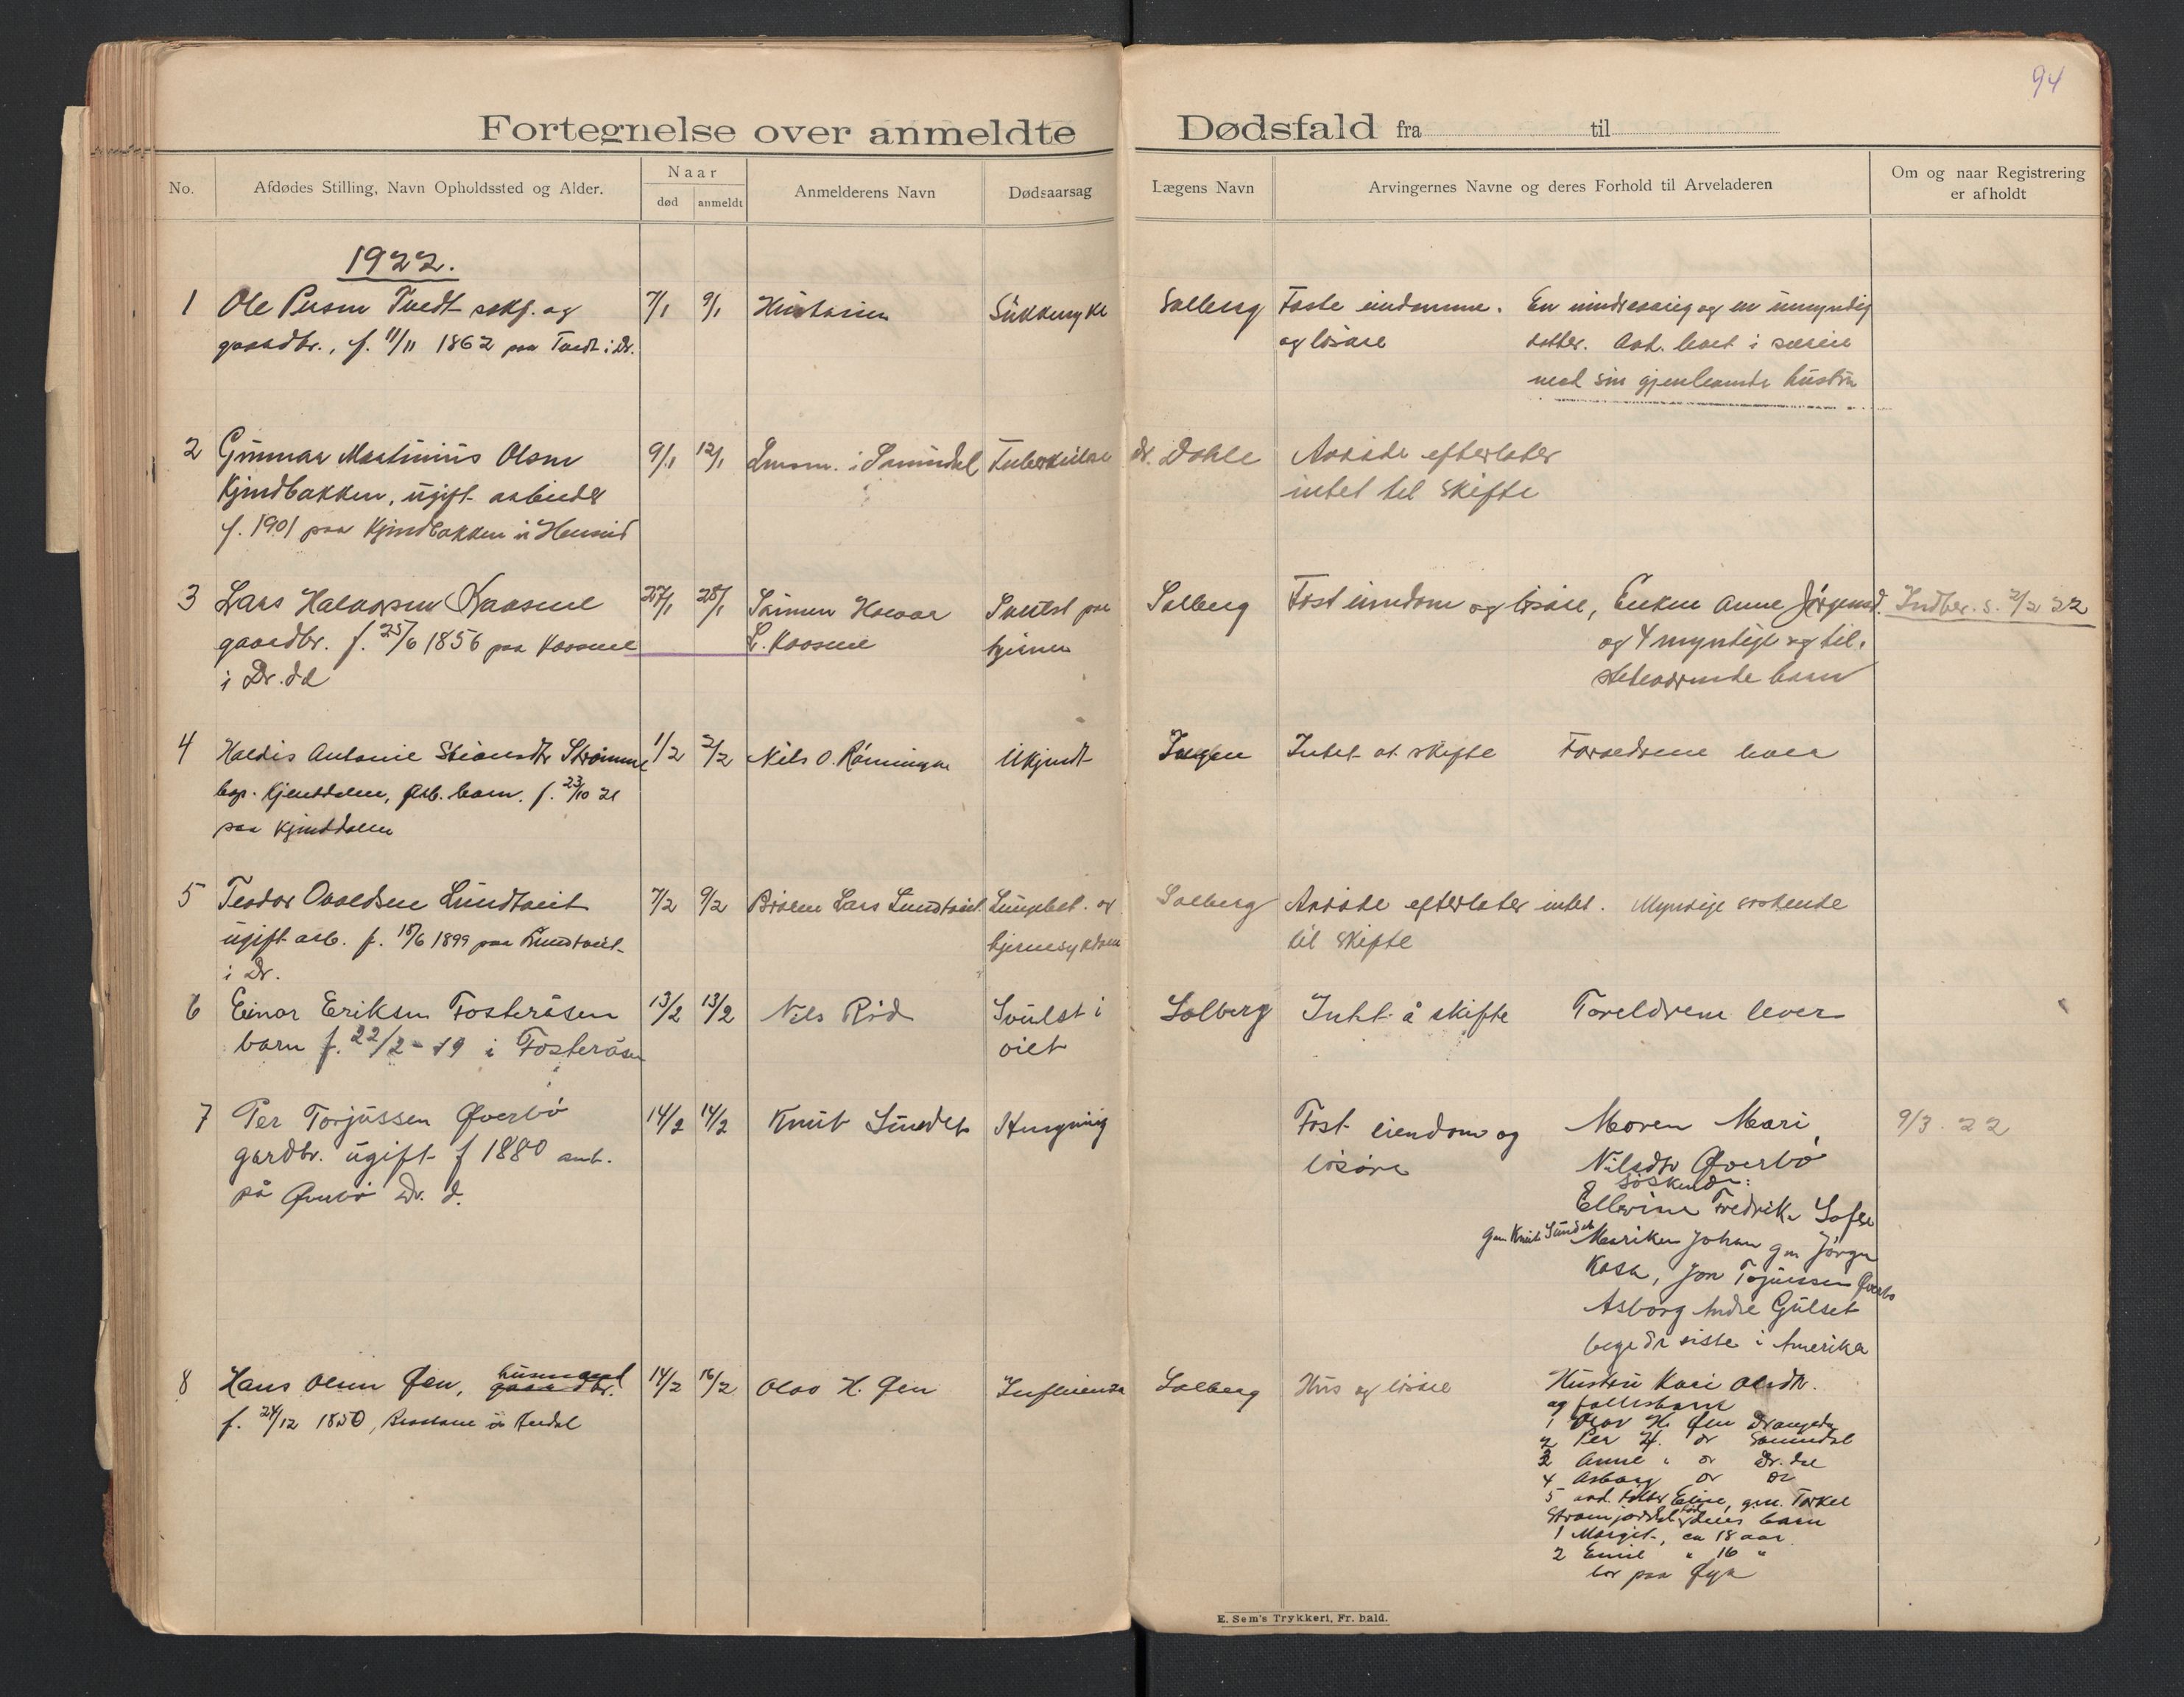 94
Fortegnelse over anmeldte Dødsfald fra til
No.
Afdødes Stilling, Navn Opholdssted og Alder.
Naar
død anmeldt
Anmelderens Navn
Dødsaarsag
Lægens Navn
Arvingernes Navne og deres Forhold til Arveladeren
Om og naar Registrering
er afholdt
1922.
1 Ole Tvedt og
gaardbr., f. 11/11 1862 paa Tvedt i Dr.
7/1 9/1
Hustruen
Sukkersyke
Solberg
Faste eiendomme.
og løsøre
En mindreaarig og en umyndig
datter. Avd. levet i særeie
med sin gjenlevende hustru
2 Gunnar Martinius Olsen
Kjendbakken, ugift arbeider
f. 1901 paa Kjendbakken i
9/1 12/1
Lensm. i Sannidal
Tuberkulose
Dr. Dahle
Avdøde efterlater
intet til skifte
3 Lars Halvorsen Kaasene
gaardbr. f. 25/6 1856 paa Kaasene
i Dr.dal
25/1 28/1
Sønnen Halvor
L. Kaasene
Svulst paa
hjernen
Solberg
Fast eiendom og løsøre, Enken Anne Jørgensd.
og 4 myndige og til.
stedeværende barn
Indber. s. 2/2 22
4 Haldis Antonie Strømme
Kjenddalen, barn. f. 23/10 21
paa Kjenddalen
1/2 2/2
Nils O. Rønningen
Ukjendt
Ingen
Intet at skifte
Forældrene lever
5 Teodor Ovaldsen Lundtveit
ugift arb. f. 18/6 1899 paa Lundtveit
i Dr.
7/2 9/2
Broren Lars Lundtveit
Lungebet. og
hjernesykdom
Solberg
Avdøde efterlater intet.
til skifte
Myndige søskende
6 Einar Eriksen Fosteråsen
barn f. 22/2-19 i Fosteråsen
13/2 13/2
Nils Rød
Svulst i
øiet
Solberg
Intet å skifte
Foreldrene lever
7 Per Torjussen Øverbø
gardbr. ugift f 1880
på Øverbø Dr. d.
14/2 14/2
Knut Sundet
Solberg
Fast eiendom og
løsøre
Moren Mari
Nilsdtr Øverbø
søskende:
Ellevine Fredrik Sofie
gm Knut Sundet
Mariken Johan gm Jørgen
Kasa, Jon Torjussen Øverbø
Asborg Andre Gulset
begge de siste i Amerika
9/3. 22
8 Hans Olsen Øen, husmand
gaardbr.
f. 24/12 1850,
14/2 16/2
Olav H. Øen
Influensa
Solberg
Hus og løsøre
Hustru Kari Olsdtr.
og fællesbarn
1 Olav H. Øen Drangedal
2 Per H. do Sannidal
3 Anne " do Dr.dal
4 Asborg do do
5 avd. datter Elise, gm. Torkel
barn
1 Margit, ca 18 aar
2 Emil " 16 "
bor paa Øya
E. Sem's Trykkeri, Fr. hald.